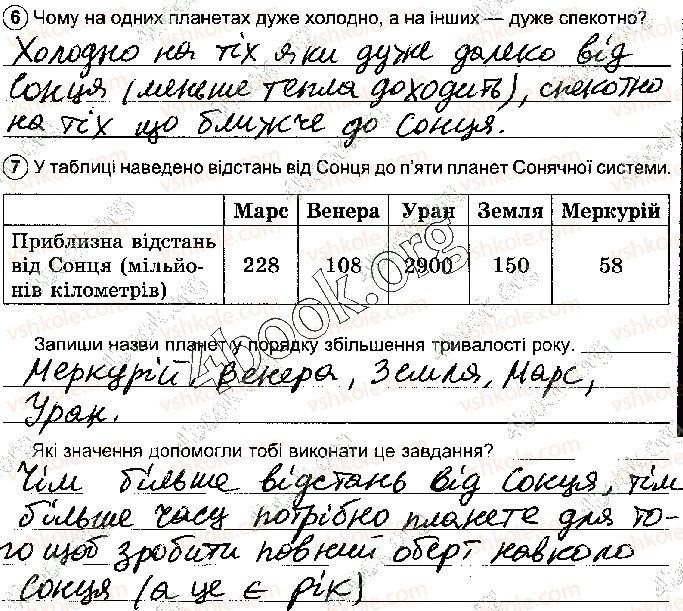 6 Чому на одних планетах дуже холодно, а на інших — дуже спекотно?
Холодно на тіх яки дуже далеко від
Сонця (меньше тепла доходить), спекотно
на тіх що ближче до Сонця.
7 У таблиці наведено відстань від Сонця до п'яти планет Сонячної системи.
Марс Венера Уран Земля Меркурій
Приблизна відстань
від Сонця (мільйо-
нів кілометрів) 228 108 2900 150 58
Запиши назви планет у порядку збільшення тривалості року.
Меркурій, Венера, Земля, Марс,
Уран.
Які значення допомогли тобі виконати це завдання?
Чім більше відстань від Сонця, тім
більше часу потрібно планете для то-
го щоб зробити повний оберт навколо
Сонця (а це є рік)
4book.org
vshkole.com